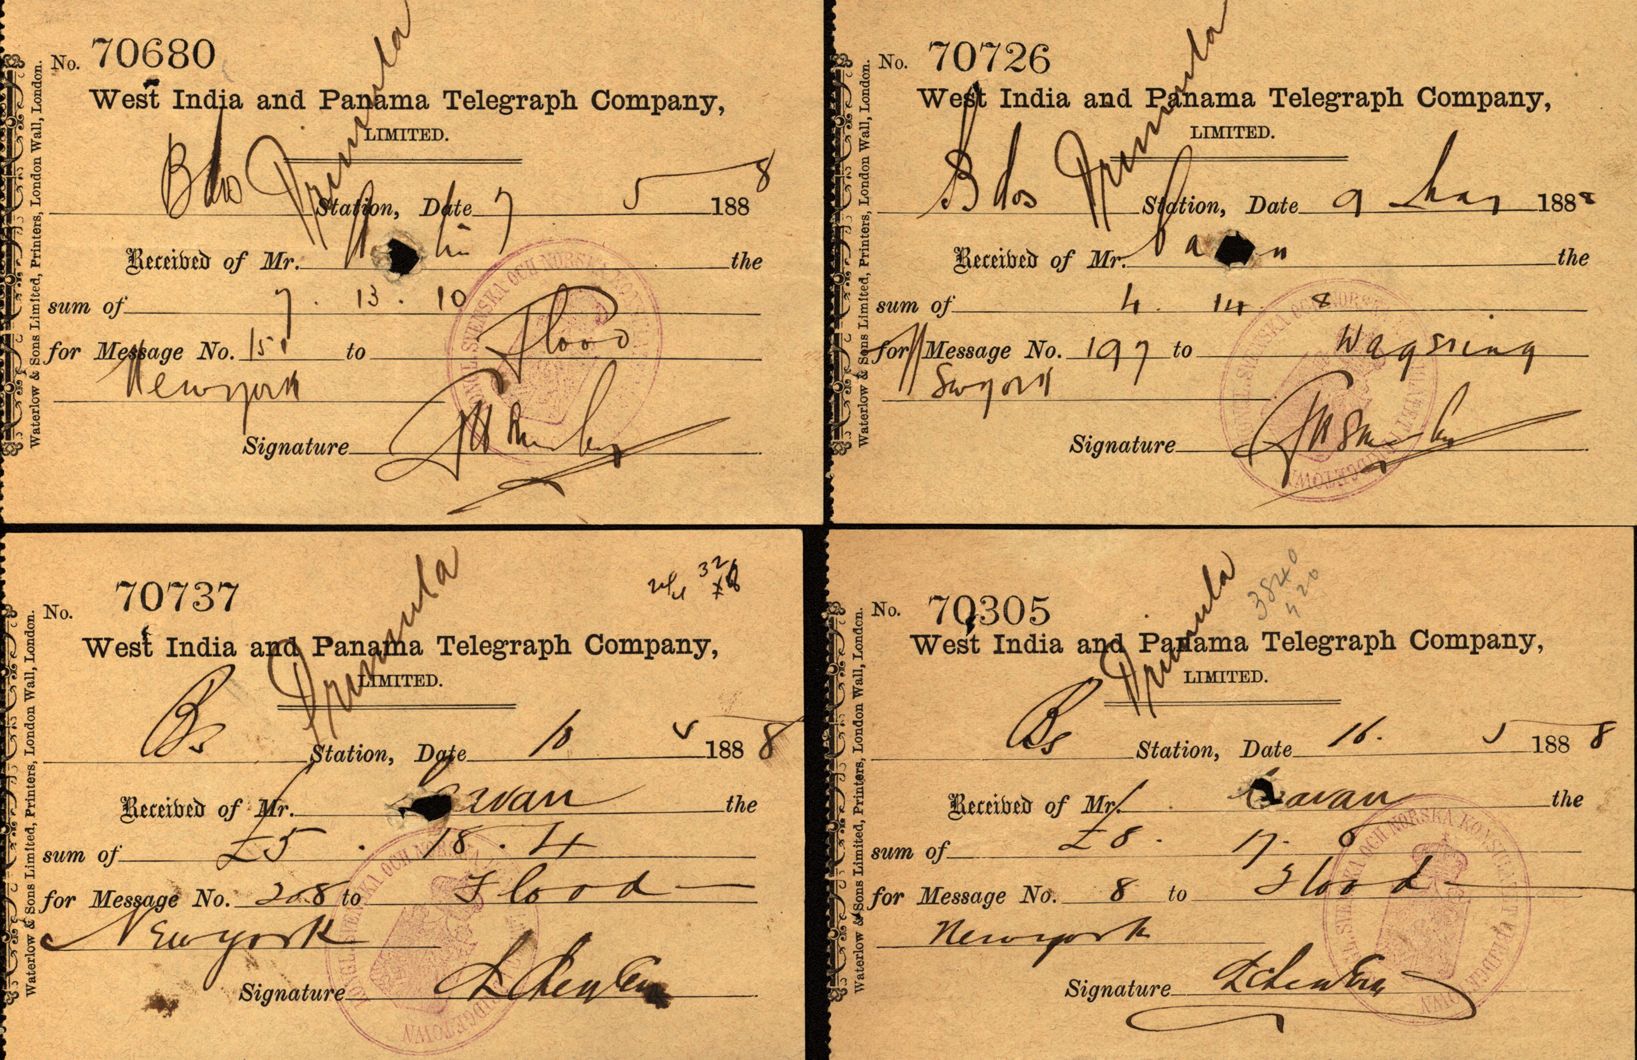 No. 70680
West India and Panama Telegraph Company,
LIMITED.
Primula
Bdos Station, Date 7 5 1888
Received of Mr. the
sum of 7 . 13 . 10
for Message No. 151 to Flood
Newyork
Signature
Waterlow & Sons Limited, Printers, London Wall, London.
No. 70726
West India and Panama Telegraph Company,
LIMITED.
Primula
Bdos Station, Date 9 May 1888
Received of Mr. the
sum of 4 . 14 . 8
for Message No. 197 to
Signature
Waterlow & Sons Limited, Printers, London Wall, London.
KONGL. SVENSKA OCH NORSKA BRIDGETOWN
No. 70737
West India and Panama Telegraph Company,
LIMITED.
Primula
Bs Station, Date 10 5 1888
Received of Mr. the
sum of £5 . 18 . 4
for Message No. 208 to Flood
Newyork
Signature
Waterlow & Sons Limited, Printers, London Wall, London.
KONGL. SVENSKA OCH NORSKA BRIDGETOWN
No. 70305
3840
420
West India and Panama Telegraph Company,
LIMITED.
Primula
Bs Station, Date 16. 5 1888
Received of Mr. the
sum of £8 . 17. 6
for Message No. 8 to Flood
Newyork
Signature
Waterlow & Sons Limited, Printers, London Wall, London.
KONGL. SVENSKA OCH NORSKA KONSULATET BRIDGETOWN